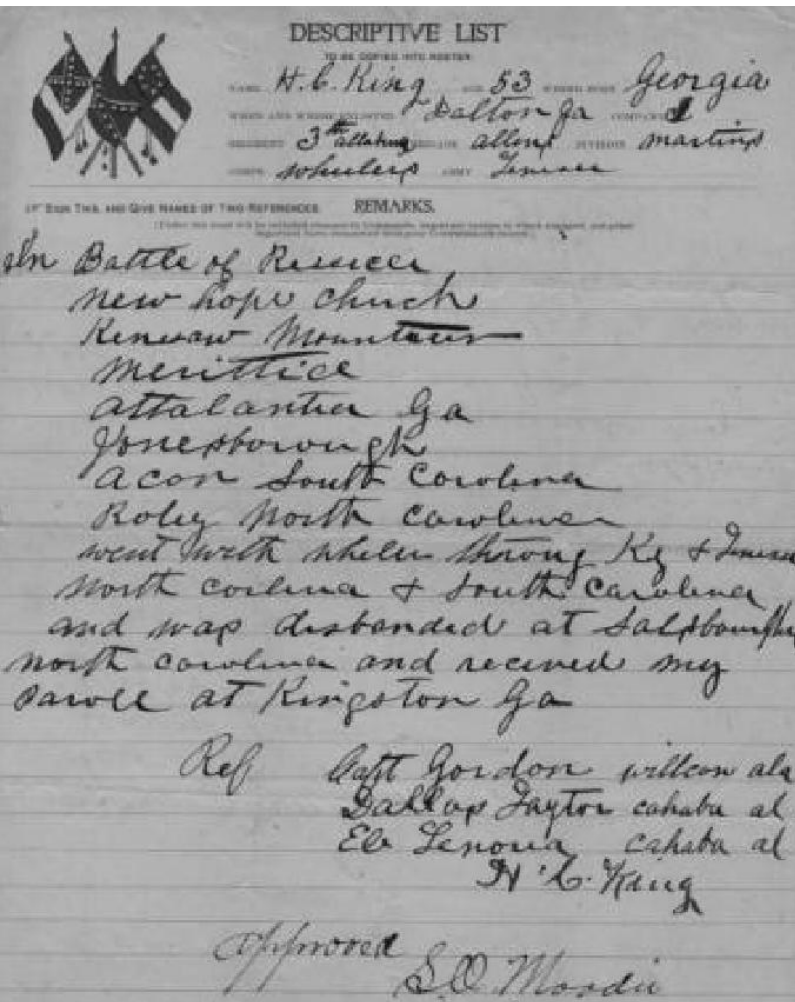 DESCRIPTIVE LIST
TO BE COPIED INTO ROSTER
NAME H. C. King AGE 53 WHERE BORN Georgia
WHEN AND WHERE ENLISTED Dalton Ga COMPANY
REGIMENT 3rd allens DIVISION martins
CORPS wheelers ARMY
SIGN THIS, AND GIVE NAMES OF TWO REFERENCES. REMARKS.
In Battle of Resacca
new hope church
Kenesaw Mountain
Merittice
attalanta Ga
Jonesborough
acon South Carolina
Roley North Carolina
went with wheler throug Ky &
North carlina & South Carolina
and was disbanded at
north carolina and received my
Parole at Kingston Ga
Ref Capt Gordon willcon ala
Dallas Taylor cahaba al
Eb Lenoria cahaba al
H. C. King
Approved
S. O. Moodie